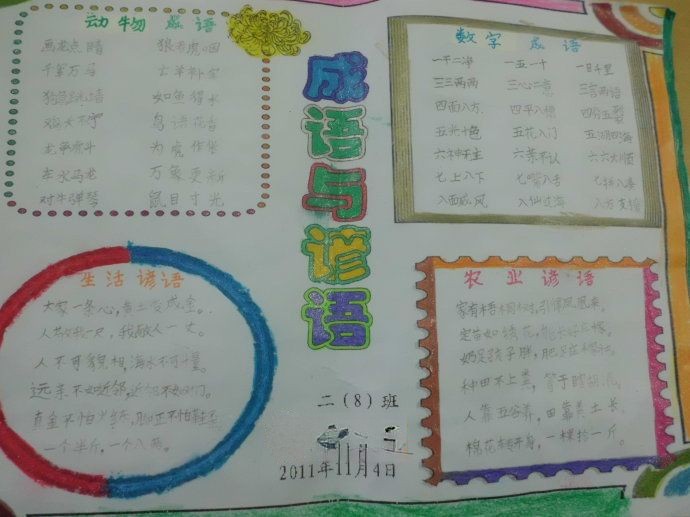 动物成语
画龙点睛 狼吞虎咽
千军万马 亡羊补牢
狗急跳墙 如鱼得水
鸡犬不宁 鸟语花香
龙争虎斗 为虎作伥
车水马龙 万象更新
对牛弹琴 鼠目寸光
成语与谚语
数字成语
一干二净 一五一十 一日千里
三三两两 三心二意 三言两语
四面八方 四平八稳 四分五裂
五光十色 五花八门 五湖四海
六神无主 六亲不认 六六大顺
七上八下 七嘴八舌 七拼八凑
八面威风 八仙过海 八方支援
生活谚语
大家一条心,黄土变成金。
人敬我一尺,我敬人一丈。
人不可貌相,海水不可量。
远亲不如近邻,近邻不如对门。
真金不怕火炼,脚正不怕鞋歪
一个半斤,一个八两。
农业谚语
家有梧桐树,引得凤凰来。
定苗如绣花,
奶足孩子胖,肥足庄稼壮。
种田不上粪,等于瞎胡混。
人靠五谷养,田靠粪土长。
棉花,一棵拾一斤。
二(8)班
2011年11月4日